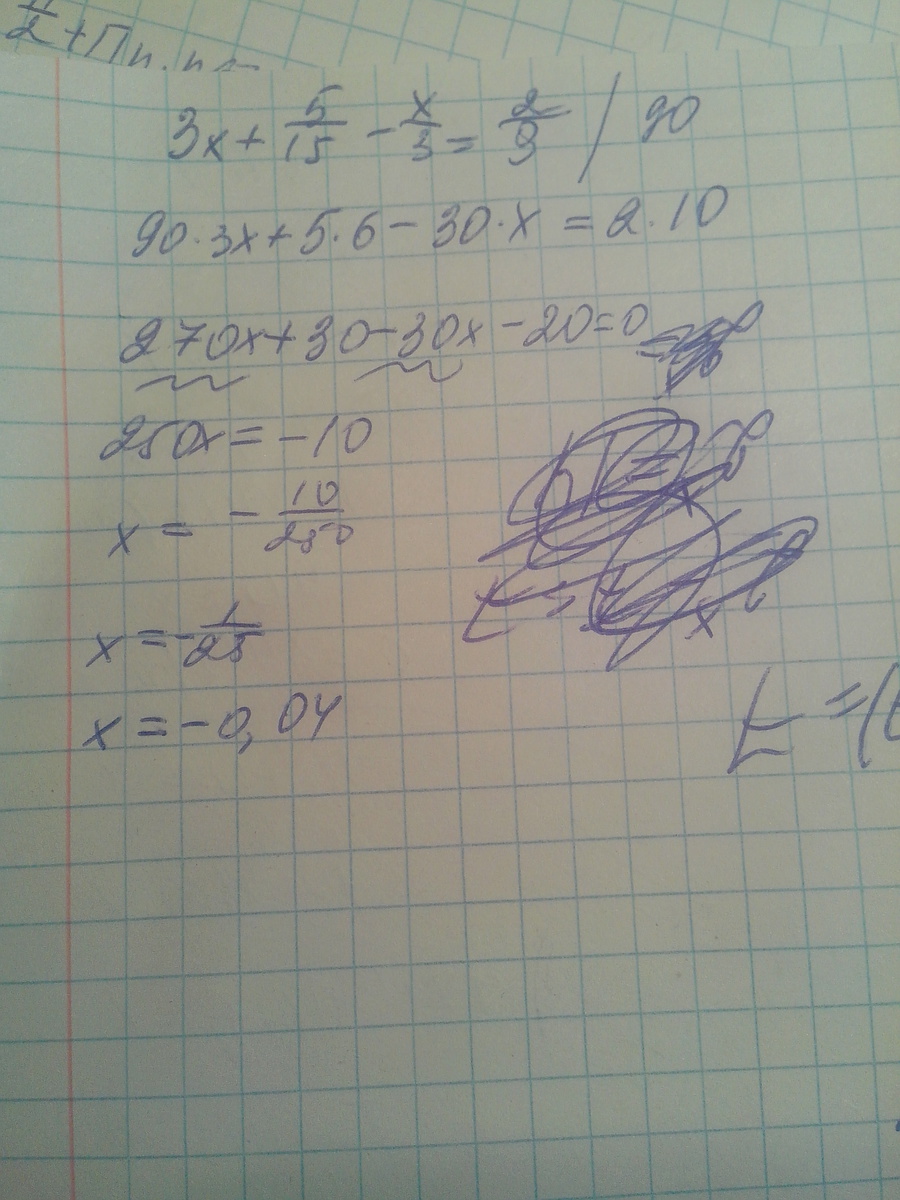 π/2 + Πn, n
3x + 5/15 - x/3 = 2/9 / 90
90·3x + 5·6 - 30·x = 2·10
270x + 30 - 30x - 20 = 0
250x = -10
x = - 10/250
x = - 1/25
x = -0,04